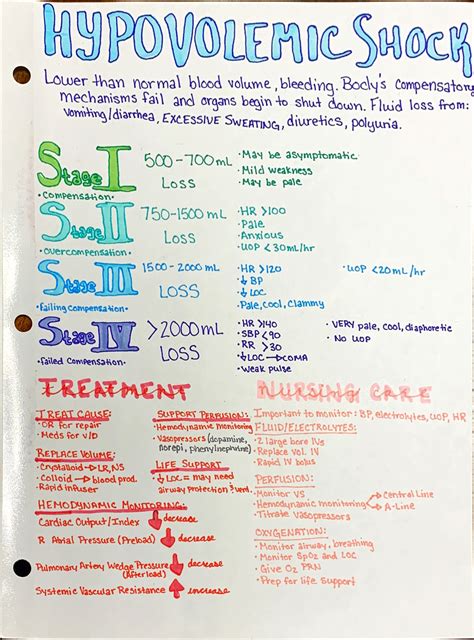 HYPOVOLEMIC SHOCK
Lower than normal blood volume, bleeding. Body's compensatory
mechanisms fail and organs begin to shut down. Fluid loss from:
vomiting/diarrhea, EXCESSIVE SWEATING, diuretics, polyuria.
Stage I
•compensation•
500-700mL
Loss
•May be asymptomatic
•Mild weakness
•May be pale
Stage II
•overcompensation•
750-1500mL
Loss
•HR >100
•Pale
•Anxious
•UOP <30mL/hr
Stage III
•failing compensation•
1500-2000mL
LOSS
•HR >120
•↓ BP
•↓ LOC
•Pale, cool, clammy
•UOP <20mL/hr
Stage IV
•failed compensation•
>2000mL
LOSS
•HR >140
•SBP <90
•RR >30
•↓LOC → COMA
•Weak pulse
•VERY pale, cool, diaphoretic
•No UOP
TREATMENT
TREAT CAUSE:
•OR for repair
•Meds for V/D
REPLACE VOLUME:
•Crystalloid → LR, NS
•Colloid → blood prod.
•Rapid Infuser
SUPPORT PERFUSION:
•Hemodynamic monitoring
•Vasopressors (dopamine,
norepi, phenylnephrine)
LIFE SUPPORT
•↓ LOC = may need
airway protection & vent.
HEMODYNAMIC MONITORING:
Cardiac Output/Index ↓ decrease
R Atrial Pressure (Preload) ↓ decrease
Pulmonary Artery Wedge Pressure ↓ decrease
(Afterload)
Systemic Vascular Resistance ↑ increase
NURSING CARE
Important to monitor: BP, electrolytes, UOP, HR
FLUID/ELECTROLYTES:
•2 large bore IVs
•Replace Vol. IV
•Rapid IV bolus
PERFUSION:
•Monitor VS
•Hemodynamic monitoring
Central Line
A-Line
•Titrate Vasopressors
OXYGENATION:
•Monitor airway, breathing
•Monitor SpO2 and LOC
•Give O2 PRN
•Prep for life Support